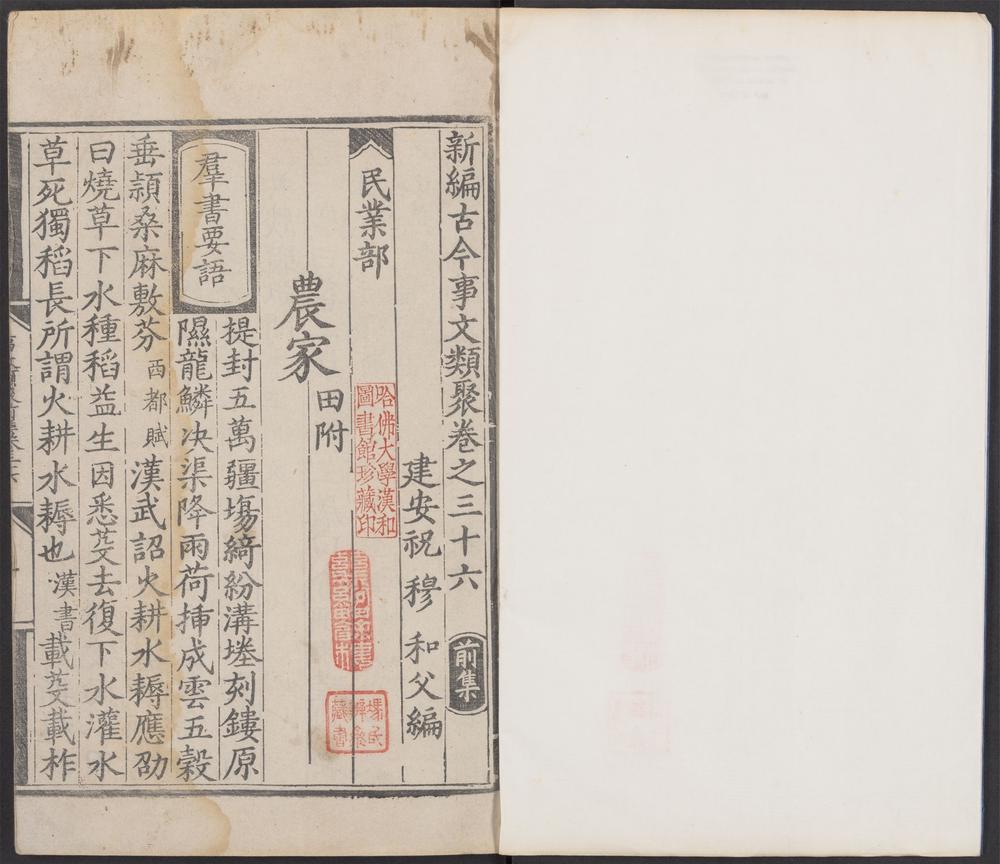 新編古今事文類聚卷之三十六 前集
建安祝 穆 和父編
民業部
農家 田附
羣書要語
提封五萬疆場綺紛溝塍刻鏤原
隰龍鱗决渠降雨荷揷成雲五穀
垂頴桑麻敷芬 西都賦 漢武詔火耕水耨應劭
曰燒草下水種稻益生因悉芟去復下水灌水
草死獨稻長所謂火耕水耨也 漢書 載芟載柞
哈佛大學漢和
圖書館珍藏印